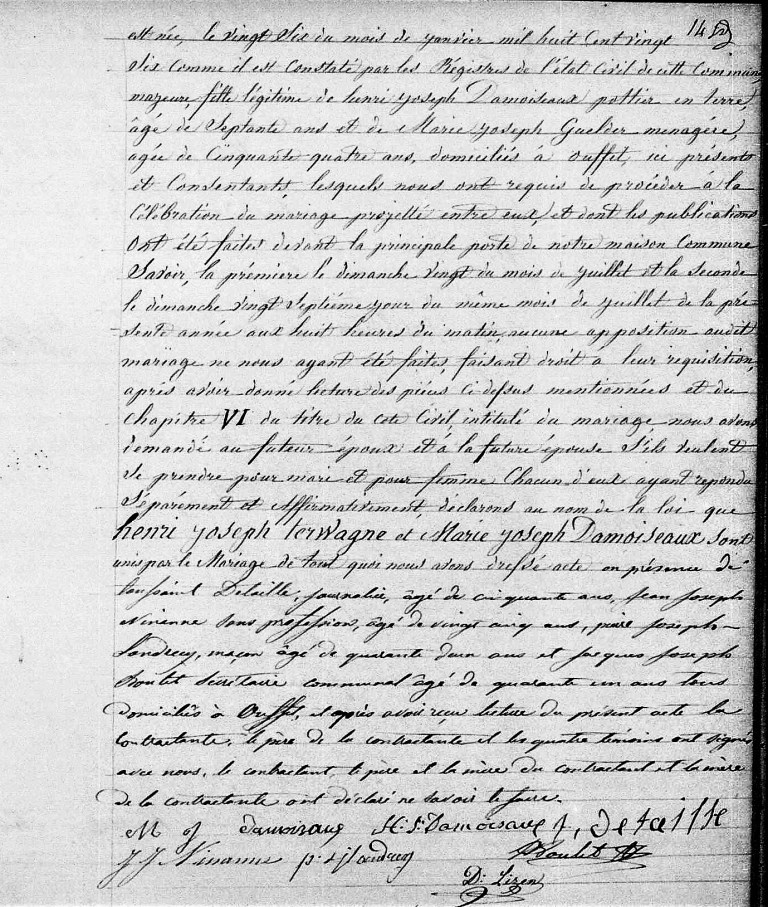 14
est née, le vingt six du mois de janvier mil huit Cent vingt
six comme il est Constaté par les Régistres de l'état Civil de cette Commune
majeure, fille légitime de henri joseph Damoiseaux pottier en terre,
âgé de Septante ans et de Marie joseph Guelder menagére,
agée de Cinquante quatre ans, domiciliés à Ouffet, ici présents
et Consentants, lesquels nous ont requis de procéder à la
Célébration du mariage projetté entre eux, et dont les publications
Ont été faites devant la principale porte de notre maison Commune
Savoir, la premiere le dimanche vingt du mois de juillet et la seconde
le dimanche vingt septiéme jour du même mois de juillet de la pré-
-sente année aux huit heures du matin, aucune apposition audit
mariage ne nous ayant été faites, faisant droit a leur requisition,
après avoir donné lecture des piéces ci dessus mentionnées et du
Chapitre VI du titre du Code Civil, intitulé du mariage nous avons
demandé au futeur époux et á la future épouse S'ils veulent
se prendre pour mari et pour femme Chacun d'eux ayant repondu
Séparément et Affirmativement, déclarons au nom de la loi que
henri joseph terwagne et Marie joseph Damoiseaux sont
unis par le Mariage de tout quoi nous avons dressé acte en présence de
toussaint Detaille, journalier, âgé de cinquante ans, Jean Joseph
Ninanne sans profession, âgé de vingt cinq ans, piere Joseph
Landrecy, maçon âgé de quarante deux ans et Jacques Joseph
Boulet Sécrétaire communal âgé de quarante un ans tous
domiciliés à Ouffet, et après avoir reçu lecture du présent acte la
contractante, le père de la contractante et les quatre témoins ont signés
avec nous, le contractant, le père et la mère du contractant et la mère
de la contractante ont déclaré ne savoir le faire.
M j damoiseaux H. J. Damoiseaux t, detaille
J J Ninanne p. j Landrecy Boulet
D. Lizen